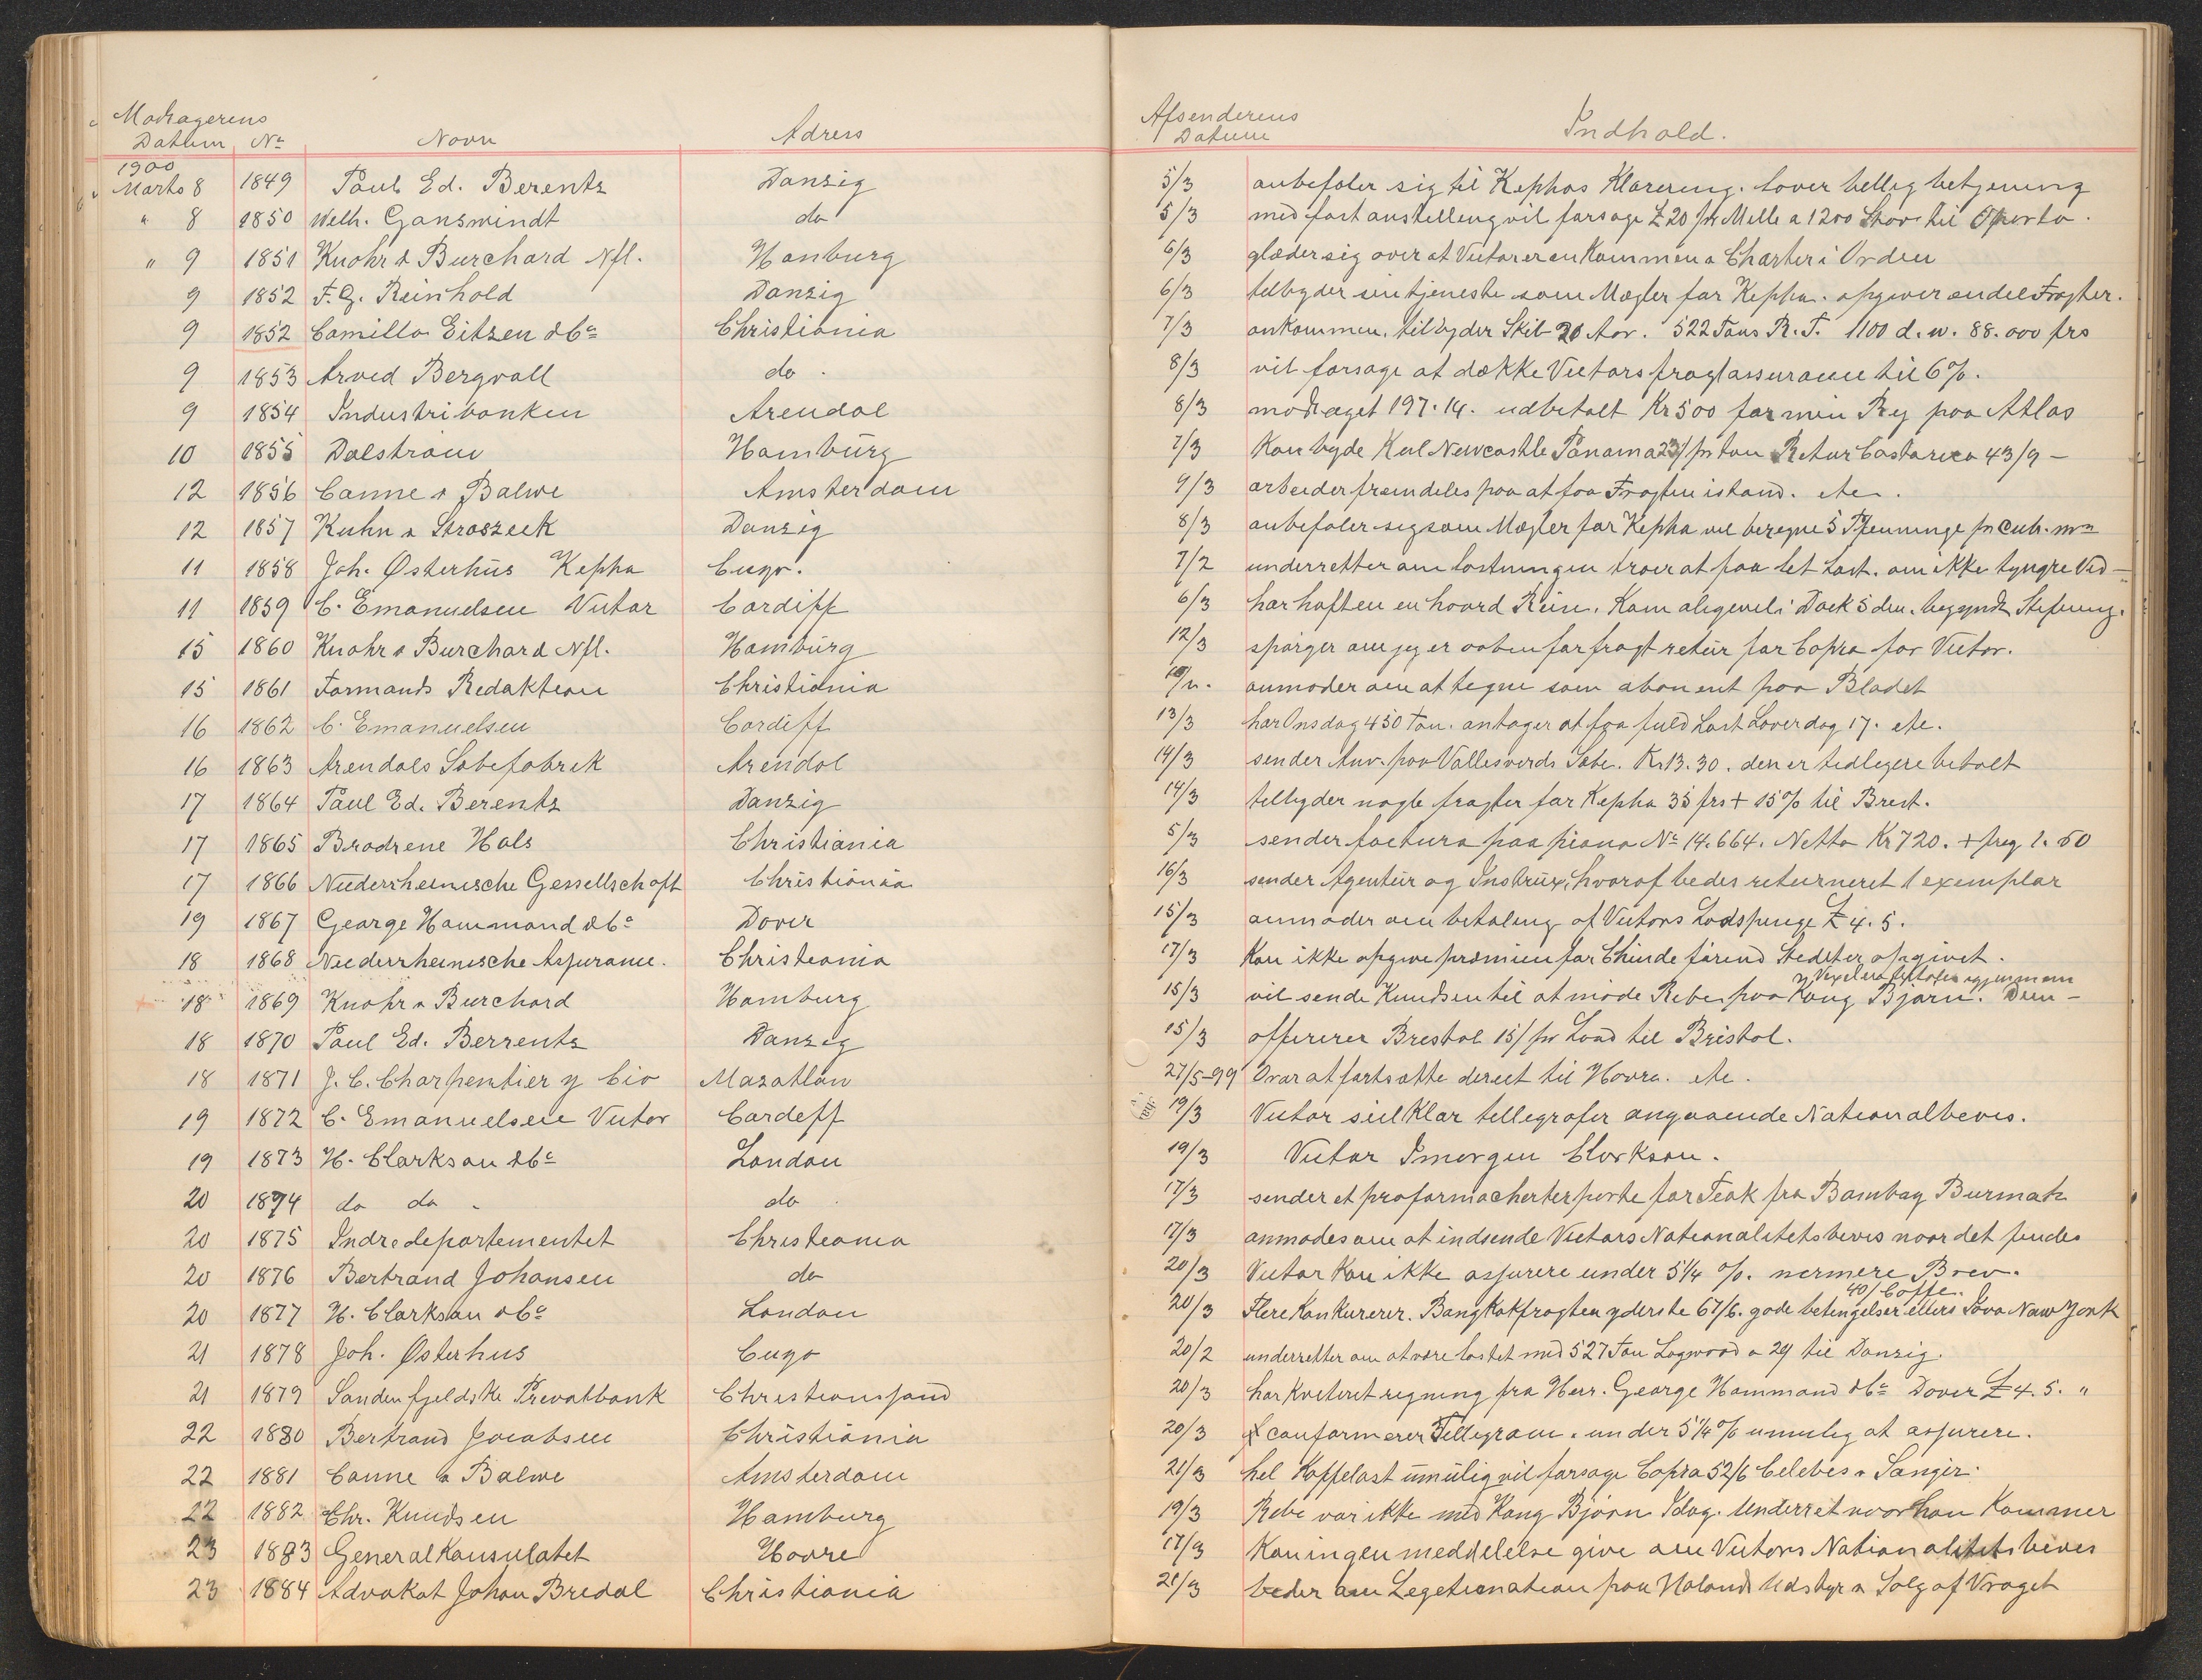 Modtagerens Afsenderens
Datum No Navn Adress Datum Indhold.
1900
Marts 8 1849 Paul Ed. Berentz Danzig 5/3 anbefaler sig til Kephas Klarering. lover billig betjening
" 8 1850 Welh. Ganswindt do 5/3 med fast anstilling vil forsøge £ 20 pr Mille a 1200 Stav til Oporto.
" 9 1851 Knohr & Burchard Nfl. Hamburg 6/3 glæder sig over at Victor er ankommen a Charter i Orden
9 1852 F. G. Reinhold Danzig 6/3 tilbyder sin tjeneste som Mægler for Kepha. opgiver en del Fragter.
9 1852 Camillo Eitzen & Co Christiania 7/3 ankommen. tilbyder Skib 20 Aar. 522 Tons R. T. 1100 d. w. 88.000 frs
9 1853 Arved Bergvall do. 8/3 vil forsøge at dække Victors fragtassurance til 6%.
9 1854 Industribanken Arendal 8/3 modtaget 197.14. udbetalt Kr 500 for min Rg paa Atlas
10 1855 Dalstrøm Hamburg 7/3 Kan byde Kul Newcastle Panama 23/ pr ton Retur Costarica 43/9 –
12 1856 Canne & Balwe Amsterdam 9/3 arbeider fremdeles paa at faa Fragten istand. etc.
12 1857 Kuhn & Stroszeck Danzig 8/3 anbefaler sig som Mægler for Kepha vil beregne 5 Pfenninge pr Cub. m
11 1858 Joh. Østerhus Kepha Cuyo. 7/2 underretter om lastningen troer at faa let Last. om ikke tyngre Ved –
11 1859 C. Emanuelsen Victor Cardiff 6/3 har haft en en haard Rein. Kom alligevel i Dock 5 dm. begyndt Stifning.
15 1860 Knohr & Burchard Nfl. Hamburg 12/3 spørger om jeg er aaben for fragt retur for Copra for Victor.
15 1861 Formands Redaktion Christiania anmoder om at tegne som abonent paa Bladet
16 1862 C. Emanuelsen Cardiff 13/3 har Onsdag 450 Ton. antager at faa fuld Last Løverdag 17. etc.
16 1863 Arendals Sæbefabrik Arendal 14/3 sender Anv. paa Vallesverds Sæbe. Kr 13.30. den er tidligere betalt
17 1864 Paul Ed. Berentz Danzig 14/3 tilbyder nogle fragter for Kepha 35 frs + 15% til Brest.
17 1865 Brødrene Hals Christiania 5/3 sender factura paa piano No 14.664. Netto Kr 720. + freg 1.50
17 1866 Niederrheinische Gessellschaft Christiania 16/3 sender Agentur og Instrux, hvoraf bedes returneret 1 exemplar
19 1867 George Hammond & Co Dover 15/3 anmoder om betaling af Victors Lodspenge £ 4.5.
18 1868 Niederrheinische Assurance. Christiania 17/3 Kan ikke opgive præmien for Chinde førend Stedet er opgivet.
18 1869 Knohr & Burchard Hamburg 15/3 vil sende Knudsen til at møde Rebe paa Kong Bjørn. Den –
18 1870 Paul Ed. Berrentz Danzig 15/3 offererer Brestol 15/ pr Load til Bristol.
18 1871 J. C. Charpentier y Cio Mazatlan 27/5-99 Ovar at fortsætte direct til Havre. etc.
19 1872 C. Emanuelsen Victor Cardeff 19/3 Victor seilklar tellegrafer angaaende Nationalbevis.
19 1873 H. Clarkson & Co London 19/3 Victor Imorgen Clarkson.
20 1874 do do do 17/3 sender et proformacherterparte for Teak fra Bambay Burmah
20 1875 Indredepartementet Christeania 17/3 anmodes om at indsende Victors Nationalitetsbevis naar det findes
20 1876 Bertrand Johansen do 20/3 Victor kan ikke assurere under 5 1/4 %. nermere Brev.
40/ Coffe.
20 1877 H. Clarkson & Co London 20/3 Flere Konkurerer. Bangkokfragten yderste 67/6. gode betingelser ellers Java Naw York
21 1878 Joh. Østerhus Cuyo 20/2 underretter om at være lastet med 527 Ton Logwood a 29 til Danzig.
21 1879 Søndenfjeldske Prevatbank Christianssand 20/3 har Kviteret regning fra Herr. George Hammond & Co Dover £ 4.5. "
22 1880 Bertrand Jocabsen Christiania 20/3 conformerer Tellegram. under 5 1/4 % umulig at assurere.
22 1881 Canne & Balwe Amsterdam 21/3 hel Kaffelast umulig vil forsøge Copra 52/6 Celebes & Sangir.
22 1882 Chr. Knudsen Hamburg 19/3 Rebe var ikke med Kong Bjørn Idag. Underret naar han Kommer
23 1883 General Konsulatet Havre 17/3 Kan ingen meddelelse give om Victors Nationalitetsbevis
23 1884 Advokat Johan Bredal Christiania 21/3 beder om Legetimation paa Holands Udstyr a Salg af Vraget